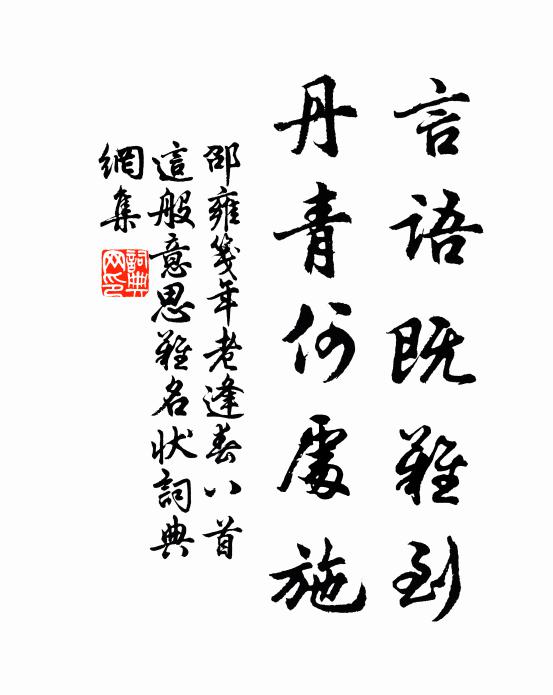 言語既難到
丹青何處施
邵雍箋年老逢春八首
這般意思難名状詞典
網集
詞典网印